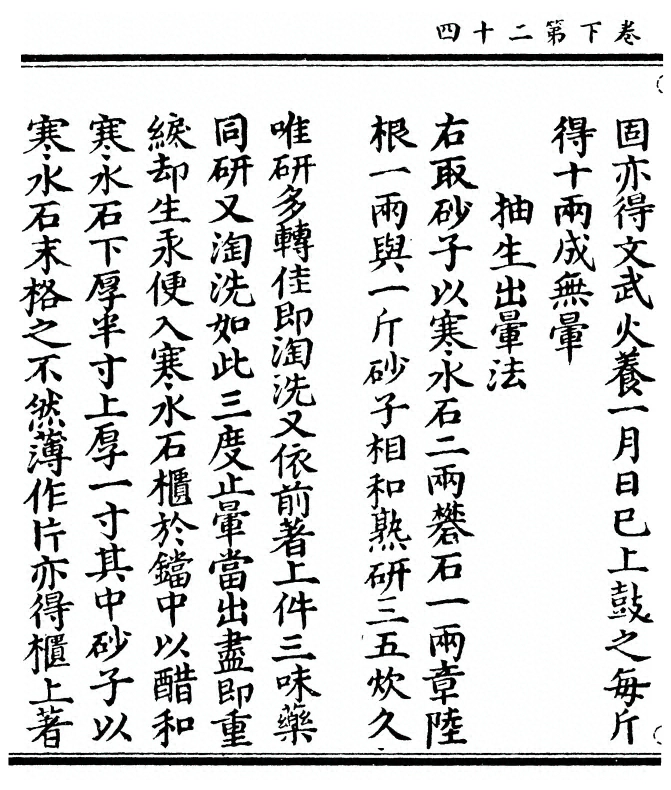 卷下第二十四
固亦得文武火養一月日巳上鼓之每斤
得十兩成無暈
抽生出暈法
右取砂子以寒水石二兩礬石一兩章陸
根一兩與一斤砂子相和熟研三五炊久
唯研多轉佳即淘洗又依前著上件三味藥
同研又淘洗如此三度止暈當出盡即重
緩却生汞便入寒水石櫃於鐺中以醋和
寒水石下厚半寸上厚一寸其中砂子以
寒水石末格之不然薄作片亦得櫃上著